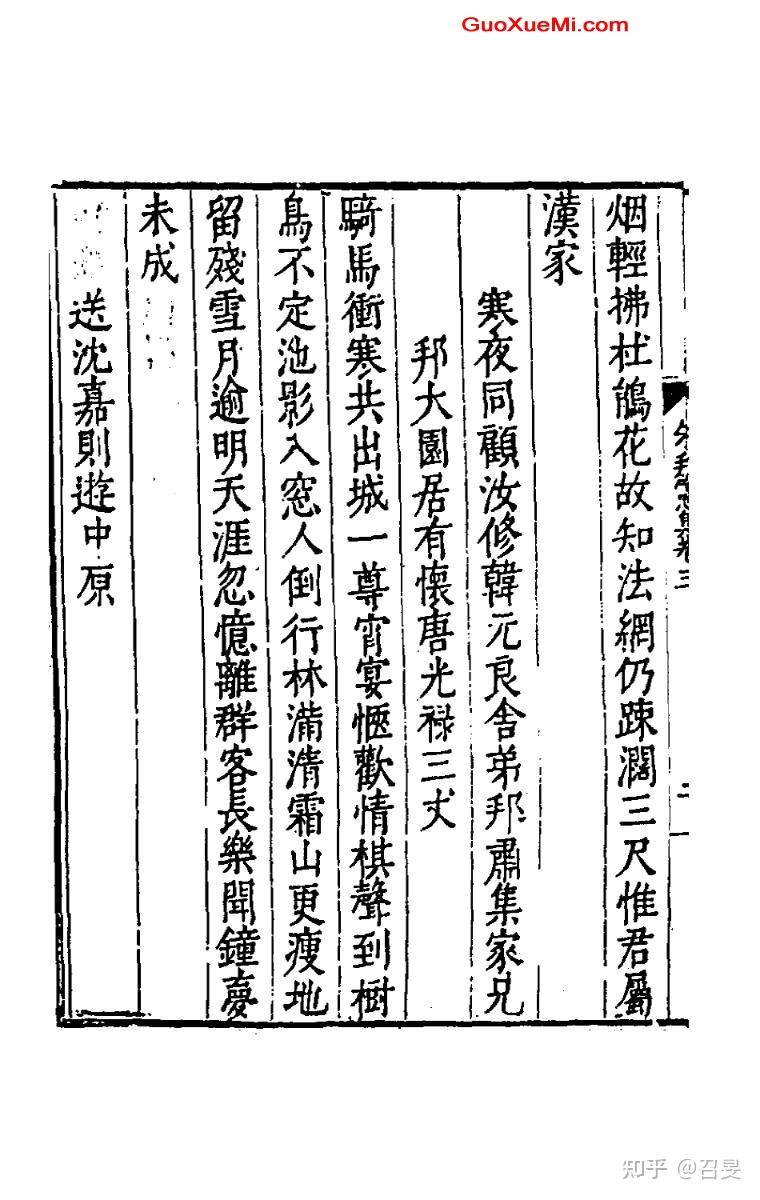 GuoXueMi.com
烟輕拂杜鵑花故知法網仍踈濶三尺惟君屬
漢家
寒夜同顧汝修韓元良舍弟邦肅集家兄
邦大園居有懷唐光禄三丈
騎馬衝寒共出城一尊宵宴愜歡情棋聲到樹
鳥不定池影入窓人倒行林滿清霜山更瘦地
留殘雪月逾明天涯忽憶離群客長樂聞鐘夢
未成
送沈嘉則遊中原
知乎 @召旻